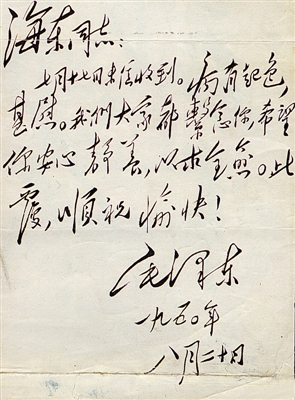 海东同志：
七月十七日来信收到。病有起色，
甚慰。我们大家都系念你，希望
你安心静养，以求全愈。此
覆，顺祝愉快！
毛泽东
一九五〇年
八月二十日